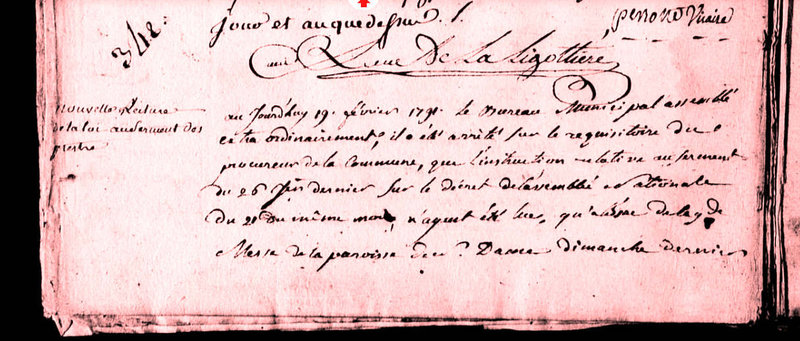 348.
Jour et an que dessus. /.
perrone Vicaire
Luce De La Ligottiere
nouvelle Lecture
de la loi au serment des
prestre
au Jourd'huy 19. février 1791. le Bureau Municipal assemblé
extra ordinairement, il a été arrêté sur le requisitoire du
procureur de la Commune, que l'instruction relative au serment
du 26 Jer dernier sur le décret de l'assemblé nationale
du 21 du même mois, n'ayent été lue, qu'a l'issue de la gde
Messe de la paroisse de n. Dame dimanche dernier